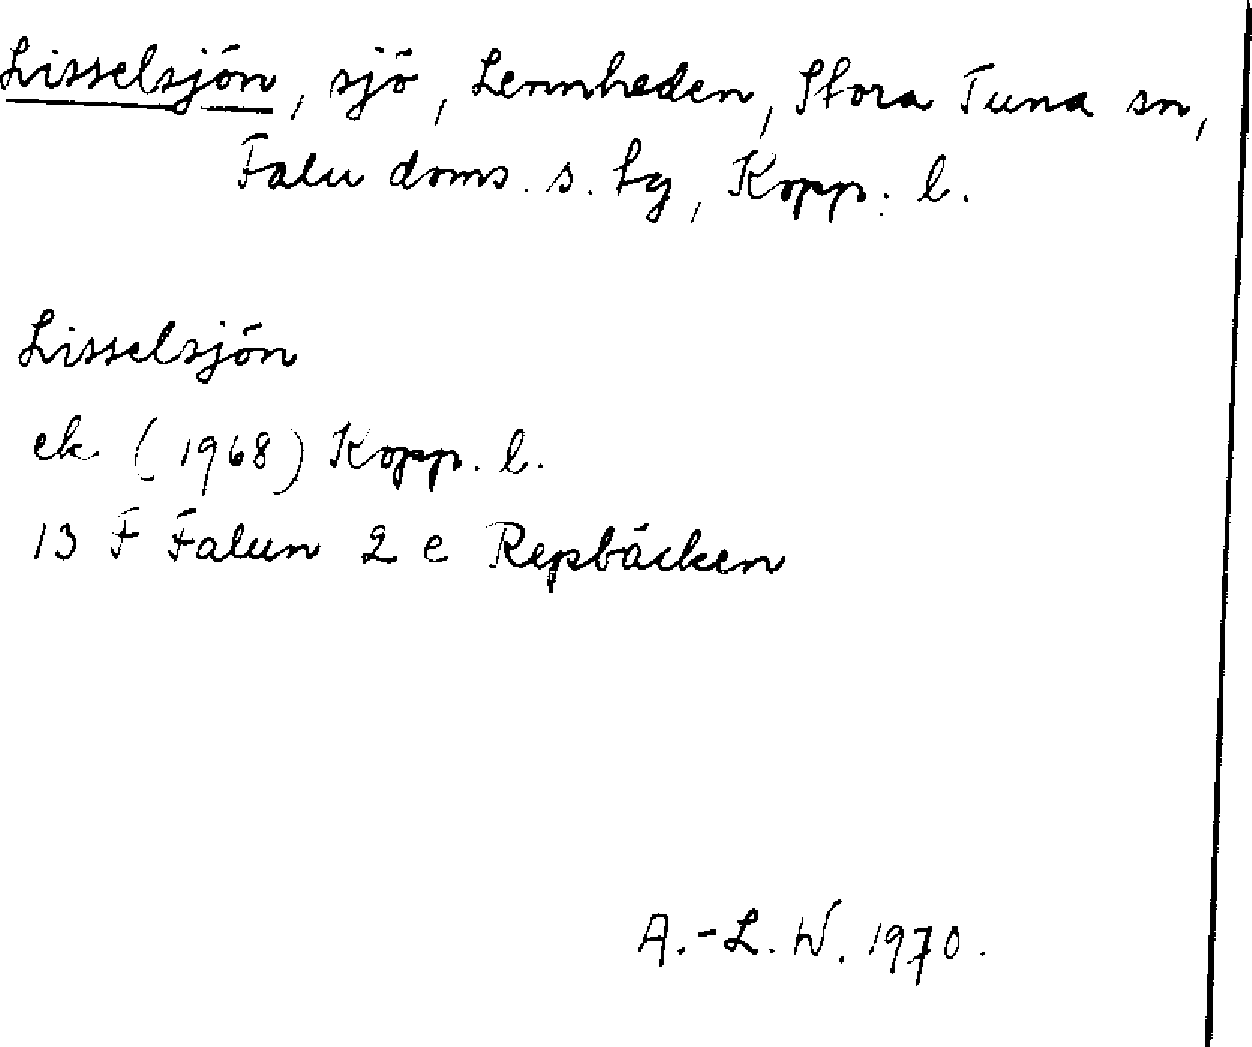 Lisselsjön, sjö, Lennheden, Stora Tuna sn,
Falu doms. s. tg, Kopp. l.
Lisselsjön
ek. (1968) Kopp. l.
13 F Falun 2 e Repbäcken
A.-L. W. 1970.